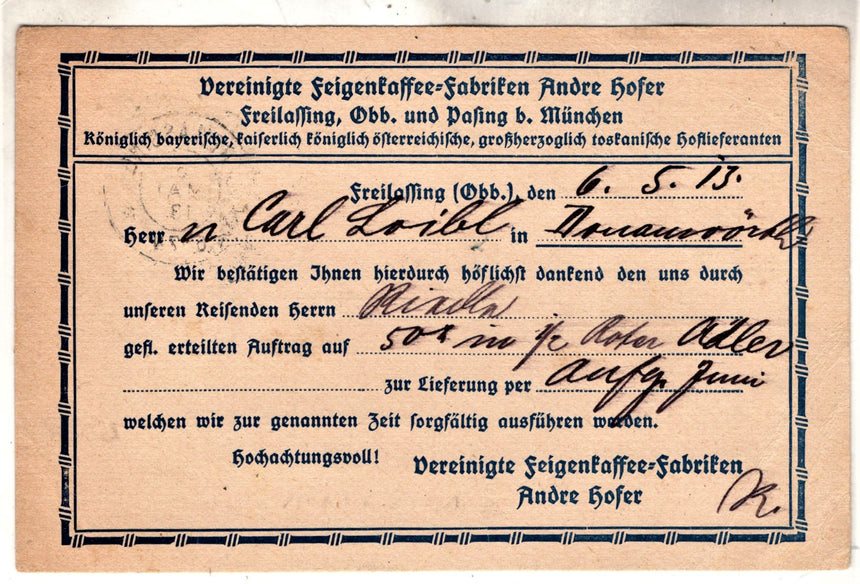 Vereinigte Feigenkaffee-Fabriken Andre Hofer
Freilassing, Obb. und Pasing b. München
Königlich bayerische, kaiserlich königlich österreichische, großherzoglich toskanische Hoflieferanten
Freilassing (Obb.), den 6. 5. 13.
Herrn Carl Loibl in Donauwörth
Wir bestätigen Ihnen hierdurch höflichst dankend den uns durch
unseren Reisenden Herrn
gefl. erteilten Auftrag auf 50 in 1/2 Roter Adler
zur Lieferung per Anfg. Juni
welchen wir zur genannten Zeit sorgfältig ausführen werden.
Hochachtungsvoll!
Vereinigte Feigenkaffee-Fabriken
Andre Hofer
K.